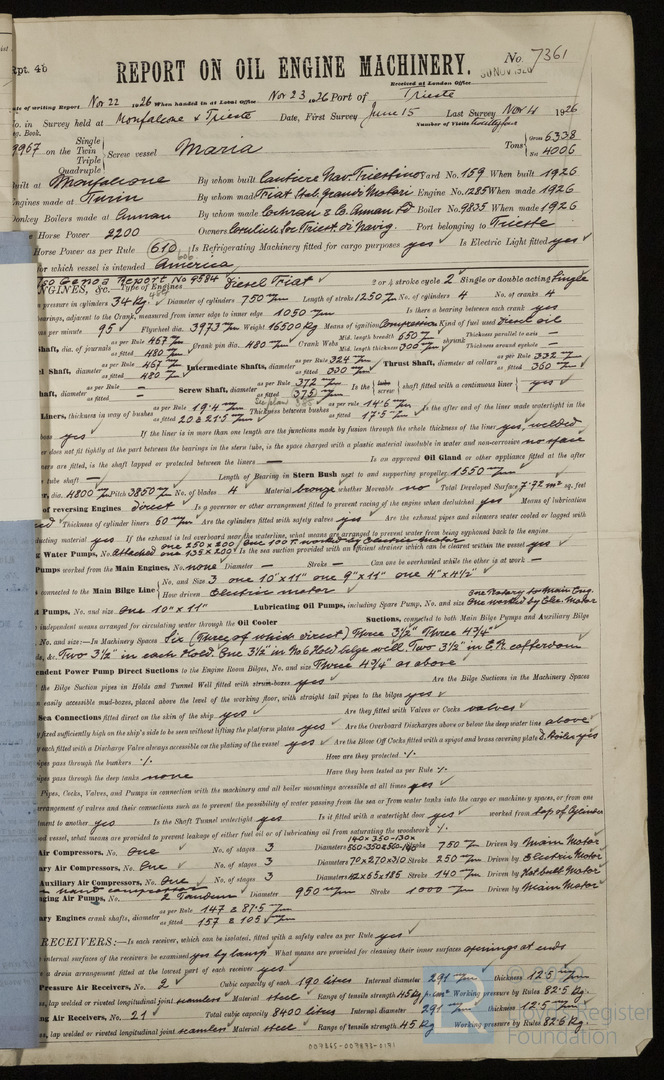 Rpt. 4b
REPORT ON OIL ENGINE MACHINERY.
No. 7361
Received at London Office
30 NOV 1926
Date of writing Report Nov 22 1926 When handed in at Local Office Nov 23 1926 Port of Trieste
No. in Survey held at Monfalcone & Trieste Date, First Survey June 15 Last Survey Nov 4 1926
Reg. Book. Number of Visits
9967 on the Single Twin Triple Quadruple Screw vessel Maria Tons Gross 6338 Net 4006
Built at Monfalcone By whom built Cantiere Nav. Triestino Yard No. 159 When built 1926
Engines made at Turin By whom made Fiat Stab. Grandi Motori Engine No. 1285 When made 1926
Donkey Boilers made at Annan By whom made Cochran & Co. Annan Ld Boiler No. 9835 When made 1926
Horse Power 2200 Owners Cosulich Soc. Triest. di Navig. Port belonging to Trieste
Horse Power as per Rule 610 606 Is Refrigerating Machinery fitted for cargo purposes yes Is Electric Light fitted yes
for which vessel is intended America
Genoa Report No 9584
ENGINES, &c. Type of Engines Diesel Fiat 2 or 4 stroke cycle 2 Single or double acting Single
pressure in cylinders 34 Kg. Diameter of cylinders 750 m/m Length of stroke 1250 m/m No. of cylinders 4 No. of cranks 4
bearings, adjacent to the Crank, measured from inner edge to inner edge 1050 m/m Is there a bearing between each crank yes
per minute 95 Flywheel dia. 3973 m/m Weight 16500 Kg Means of ignition Compression Kind of fuel used Diesel oil
Shaft, dia. of journals as per Rule 467 m/m as fitted 480 m/m Crank pin dia. 480 m/m Crank Webs Mid. length breadth 650 m/m Mid. length thickness 300 m/m shrunk Thickness parallel to axis — Thickness around eyehole —
Shaft, diameter as per Rule 467 m/m as fitted 480 m/m Intermediate Shafts, diameter as per Rule 324 m/m as fitted 330 m/m Thrust Shaft, diameter at collars as per Rule 332 m/m as fitted 360 m/m
Shaft, diameter as per Rule — as fitted — Screw Shaft, diameter as per Rule 372 m/m as fitted 375 m/m Is the tube screw shaft fitted with a continuous liner yes
See plan 385
Liners, thickness in way of bushes as per Rule 19.4 m/m as fitted 20 & 21.5 m/m Thickness between bushes as per rule 14.6 m/m as fitted 17.5 m/m Is the after end of the liner made watertight in the
boss yes If the liner is in more than one length are the junctions made by fusion through the whole thickness of the liner yes, welded
does not fit tightly at the part between the bearings in the stern tube, is the space charged with a plastic material insoluble in water and non-corrosive no space
liners are fitted, is the shaft lapped or protected between the liners — Is an approved Oil Gland or other appliance fitted at the after
tube shaft — Length of Bearing in Stern Bush next to and supporting propeller 1550 m/m
dia. 4800 m/m Pitch 3850 m/m No. of blades 4 Material bronze whether Moveable no Total Developed Surface 7.72 m² sq. feet
of reversing Engines direct Is a governor or other arrangement fitted to prevent racing of the engine when declutched yes Means of lubrication
Thickness of cylinder liners 50 m/m Are the cylinders fitted with safety valves yes Are the exhaust pipes and silencers water cooled or lagged with
conducting material yes If the exhaust is led overboard near the waterline, what means are arranged to prevent water from being syphoned back to the engine
one 250 x 200 / one 100 T. worked by Electric Motor
Water Pumps, No. Attached one 135 x 200 Is the sea suction provided with an efficient strainer which can be cleared within the vessel yes
Pumps worked from the Main Engines, No. none Diameter — Stroke — Can one be overhauled while the other is at work —
connected to the Main Bilge Line No. and Size 3 one 10" x 11" one 9" x 11" one 4" x 4½"
How driven Electric motor
Pumps, No. and size one 10" 11" Lubricating Oil Pumps, including Spare Pump, No. and size one Rotary by Main Eng. One worked by Elec. Motor
independent means arranged for circulating water through the Oil Cooler Suctions, connected to both Main Bilge Pumps and Auxiliary Bilge
No. and size:—In Machinery Spaces Six (Three of which direct) Three 3½" Three 4¾"
&c. Two 3½" in each Hold. One 3½" in No 6 Hold bilge well Two 3½" in E.R. cofferdam
Independent Power Pump Direct Suctions to the Engine Room Bilges, No. and size Three 4¾" as above
the Bilge Suction pipes in Holds and Tunnel Well fitted with strum-boxes yes Are the Bilge Suctions in the Machinery Spaces
easily accessible mud-boxes, placed above the level of the working floor, with straight tail pipes to the bilges yes
Sea Connections fitted direct on the skin of the ship yes Are they fitted with Valves or Cocks valves
fixed sufficiently high on the ship's side to be seen without lifting the platform plates yes Are the Overboard Discharges above or below the deep water line above
each fitted with a Discharge Valve always accessible on the plating of the vessel yes Are the Blow Off Cocks fitted with a spigot and brass covering plate D. Boiler yes
pipes pass through the bunkers ·/. How are they protected ·/.
pipes pass through the deep tanks none Have they been tested as per Rule ·/.
Pipes, Cocks, Valves, and Pumps in connection with the machinery and all boiler mountings accessible at all times yes
arrangement of valves and their connections such as to prevent the possibility of water passing from the sea or from water tanks into the cargo or machinery spaces, or from one
compartment to another yes Is the Shaft Tunnel watertight yes Is it fitted with a watertight door yes worked from top of Cylinder
vessel, what means are provided to prevent leakage of either fuel oil or of lubricating oil from saturating the woodwork ·/.
Air Compressors, No. One No. of stages 3 Diameters 140 x 350 - 130 x 560 - 350 & 560 - 140 Stroke 750 m/m Driven by Main Motor
Air Compressors, No. One No. of stages 3 Diameters 70 x 270 x 310 Stroke 250 m/m Driven by Electric Motor
Auxiliary Air Compressors, No. One No. of stages 3 Diameters 42 x 65 x 185 Stroke 140 m/m Driven by Hot bulb Motor
Scavenging Air Pumps, No. 2 Tandem Diameter 950 m/m Stroke 1000 m/m Driven by Main Motor
Engines crank shafts, diameter as per Rule 147 & 87.5 m/m as fitted 157 & 105 m/m
RECEIVERS:—Is each receiver, which can be isolated, fitted with a safety valve as per Rule yes
internal surfaces of the receivers be examined yes by lamp What means are provided for cleaning their inner surfaces openings at ends
a drain arrangement fitted at the lowest part of each receiver yes
Pressure Air Receivers, No. 2 Cubic capacity of each 190 litres Internal diameter 291 m/m thickness 12.5 m/m
lap welded or riveted longitudinal joint seamless Material steel Range of tensile strength 45 Kg p. cm² Working pressure by Rules 82.5 Kg.
Air Receivers, No. 21 Total cubic capacity 8400 litres Internal diameter 291 m/m thickness 12.5 m/m
lap welded or riveted longitudinal joint seamless Material steel Range of tensile strength 45 Kg Working pressure by Rules 82.6 Kg.
Lloyd's Register
Foundation
007865-007873-0171